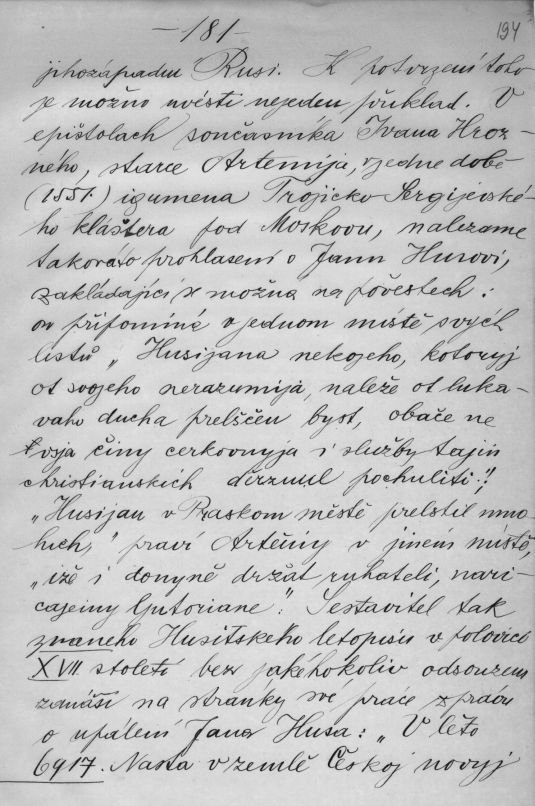 —181— 194
jihozápadu Rusi. K potvrzení toho
je možno uvésti nejeden příklad. V
epištolach současníka Ivana Hroz-
ného, starce Artemija, v jedne době
(1551.) igumena Trojicko Sergijevské-
ho kláštera pod Moskvou, nalezame
takovéto prohlaseni o Janu Husovi,
zakládající se možna na pověstech:
on přifomíná v jednom místě svých
listů „Husijana nekojeho, kotoryj
ot svojeho nerazumija, naleže ot luka-
vaho ducha prelščen byst, obače ne
vsja činy cerkovnyja i služby tajin
christianskich derznul pochuliti",
„Husijan v Praskom městě prelstil mno-
hich," praví Artěmy v jiném místě,
„iže i donyně držat ruhateli, nari-
cajemy ljutoriane." Sestavitel tak
zvaneho Husitskeho letopisu v polovici
XVII. století bez jakéhokoliv odsouzení
zanáší na stranky své práce zprávu
o upálení Jana Husa: „V lěto
6917. Nasta v zemlě Českoj novyj